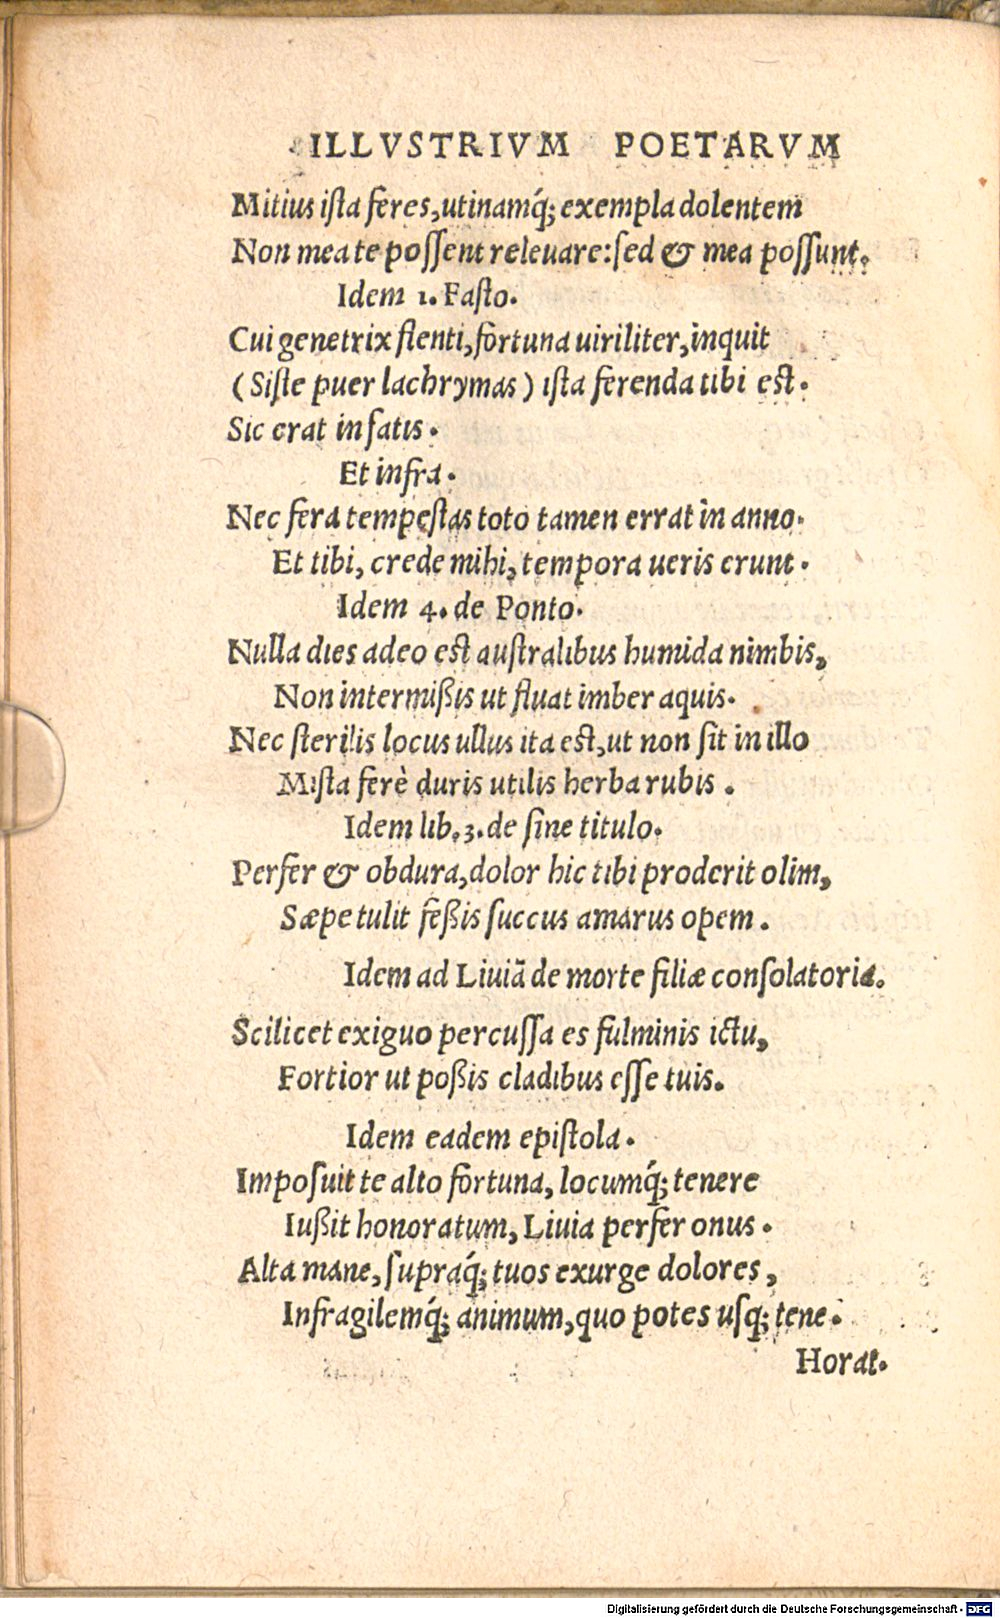 ILLVSTRIVM POETARVM
Mitius iſta feres, utinamq́; exempla dolentem
Non mea te poſſent releuare: ſed & mea poſſunt.
Idem 1. Faſto.
Cui genetrix flenti, fortuna uiriliter, inquit
(Siſte puer lachrymas) iſta ferenda tibi eſt.
Sic erat in fatis.
Et infra.
Nec fera tempeſtas toto tamen errat in anno.
Et tibi, crede mihi, tempora ueris erunt.
Idem 4. de Ponto.
Nulla dies adeo eſt auſtralibus humida nimbis,
Non intermißis ut fluat imber aquis.
Nec ſterilis locus ullus ita eſt, ut non ſit in illo
Miſta ferè duris utilis herba rubis.
Idem lib. 3. de ſine titulo.
Perfer & obdura, dolor hic tibi proderit olim,
Sæpe tulit feßis ſuccus amarus opem.
Idem ad Liuiā de morte filiæ conſolatoria.
Scilicet exiguo percuſſa es fulminis ictu,
Fortior ut poßis cladibus eſſe tuis.
Idem eadem epiſtola.
Impoſuit te alto fortuna, locumq́; tenere
Iußit honoratum, Liuia perfer onus.
Alta mane, ſupraq́; tuos exurge dolores,
Infragilemq́; animum, quo potes uſq; tene.
Horat.
Digitalisierung gefördert durch die Deutsche Forschungsgemeinschaft - DFG